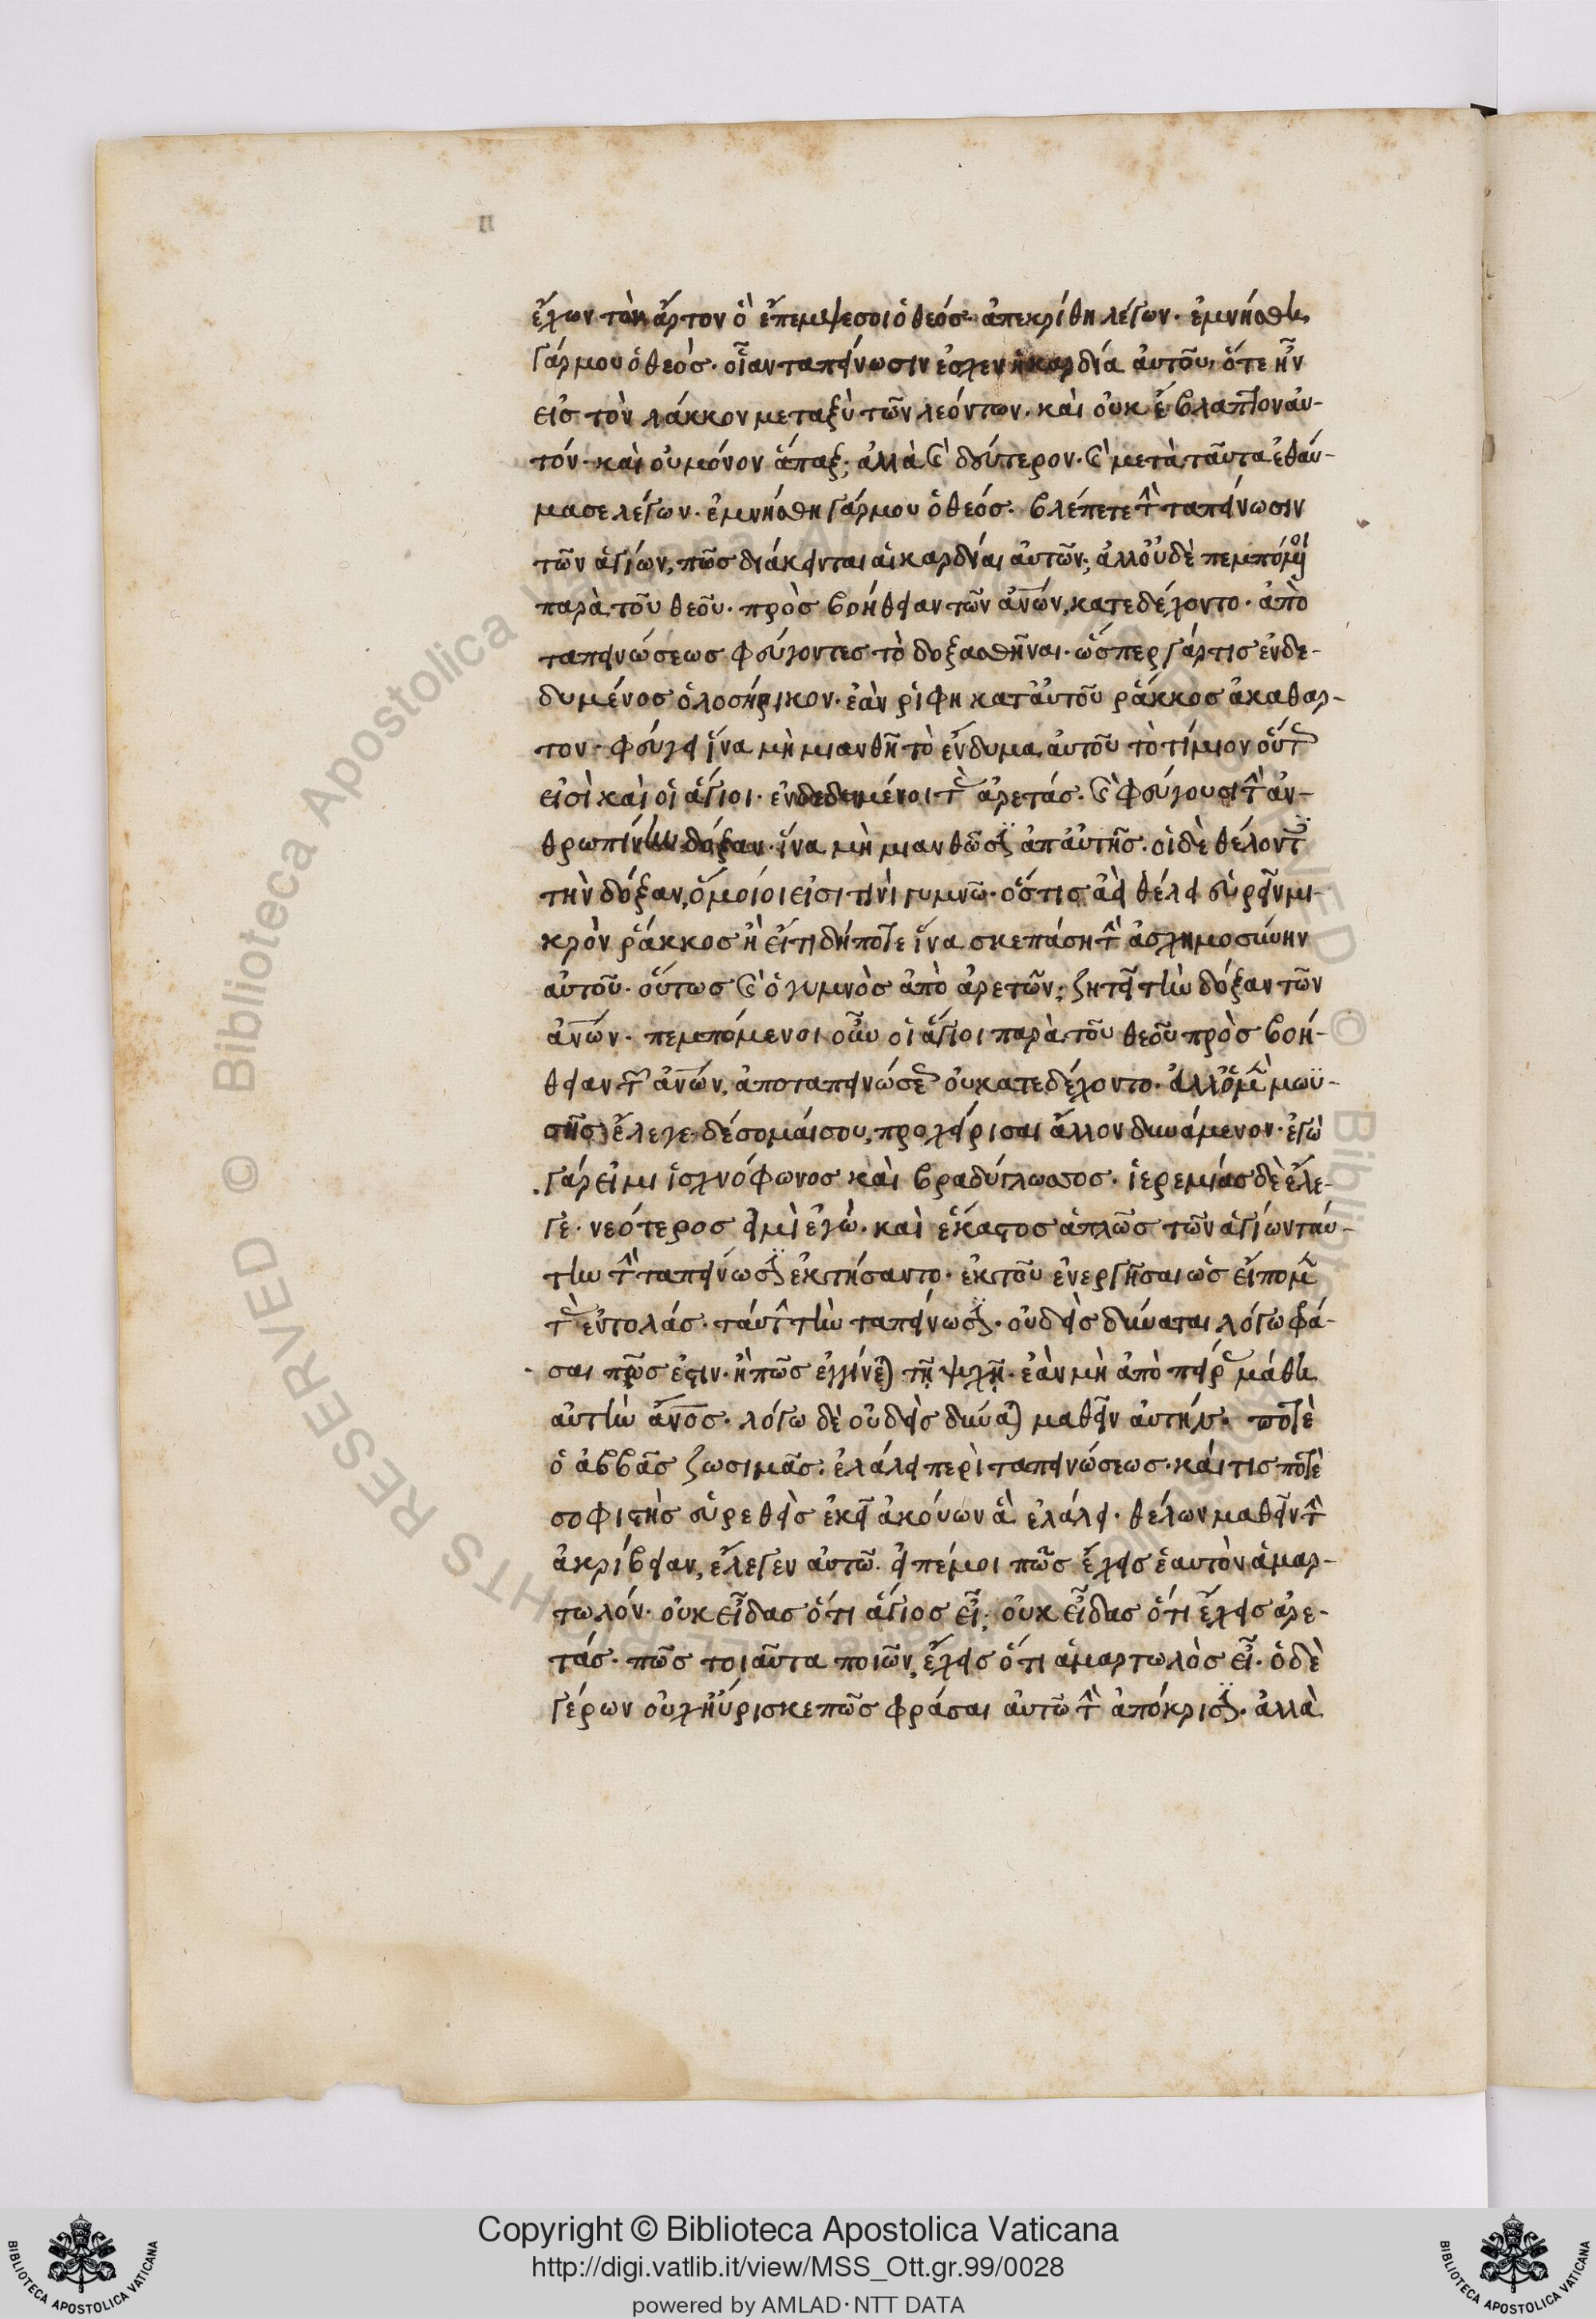 ἔχων τὸν ἄρτον ὃ ἔπεμψε σοι ὁ θεός· ἀπεκρίθη λέγων· ἐμνήσθη
γάρ μου ὁ θεὸς· οἵαν ταπείνωσιν ἔσχεν ἡ καρδία αὐτοῦ, ὅτε ἦν
εἰς τὸν λάκκον μεταξὺ τῶν λεόντων· καὶ οὐκ ἔβλαπτον αὐ-
τόν· καὶ οὐ μόνον ἅπαξ; ἀλλὰ καὶ δεύτερον· καὶ μετὰ ταῦτα ἐθαύ-
μασε λέγων· ἐμνήσθη γάρ μου ὁ θεός· βλέπετε τὴν ταπείνωσιν
τῶν ἁγίων, πῶς διάκεινται αἱ καρδίαι αὐτῶν; ἀλλ' οὐδὲ πεμπόμενοι
παρὰ τοῦ θεοῦ· πρὸς βοήθειαν τῶν ἀνών, κατεδέχοντο· ἀπὸ
ταπεινώσεως φεύγοντες τὸ δοξασθῆναι· ὥσπερ γάρ τις ἐνδε-
δυμένος ὁλοσήρικον· ἐὰν ῥίψη κατ' αὐτοῦ ῥάκκος ἀκαθαρ-
τον· φεύγει ἵνα μὴ μιανθῆ τὸ ἔνδυμα αὐτοῦ τὸ τίμιον οὕτως
εἰσὶ καὶ οἱ ἅγιοι· ἐνδεδυμένοι τὰς ἀρετάς· καὶ φεύγουσι τὴν ἀν-
θρωπίνην δόξαν· ἵνα μὴ μιανθῶσιν ἀπ' αὐτῆς· οἱ δὲ θέλοντες
τὴν δόξαν, ὅμοίοι εἰσι τινὶ γυμνῶ· ὅστις ἀεὶ θέλει εὑρεῖν μι-
κρὸν ῥάκκος ἢ εἴτι δήποτε ἵνα σκεπάση τὴν ἀσχημοσύνην
αὐτοῦ· οὕτως καὶ ὁ γυμνὸς ἀπὸ ἀρετῶν; ζητεῖ τὴν δόξαν τῶν
ἀνών· πεμπόμενοι οὖν οἱ ἅγιοι παρὰ τοῦ θεοῦ πρὸς βοή-
θειαν τῶν ἀνών, ἀπο ταπεινώσεως οὐ κατεδέχοντο· ἀλλ' ὁ μὲν μωϋ-
σῆς ἔλεγε· δέομαί σου, προχείρισαι ἄλλον δυνάμενον· ἐγὼ
γάρ εἰμι ἰσχνόφωνος καὶ βραδύγλωσσος· ἱερεμίας δὲ ἔλε-
γε· νεότερος εἰμὶ ἐγὼ· καὶ ἕκαστος ἁπλῶς τῶν ἁγίων ταύ-
την τὴν ταπείνωσιν ἐκτήσαντο· ἐκ τοῦ ἐνεργῆσαι ὡς εἴπομεν
τὰς ἐντολάς· ταύτην τὴν ταπείνωσιν· οὐδεὶς δύναται λόγω φά-
σαι πῶς ἐστιν· ἢ πῶς ἐγγίνεται τῆ ψυχῆ· ἐὰν μὴ ἀπὸ πείρας μάθη
αὐτὴν ἄνος· λόγω δὲ οὐδεὶς δύναται μαθεῖν αὐτήν· ποτὲ
ὁ ἀββᾶς ζωσιμᾶς· ἐλάλει περὶ ταπεινώσεως· καί τις ποτὲ
σοφιστὴς εὑρεθεὶς ἐκεῖ ἀκούων ἃ ἐλάλει· θέλων μαθεῖν τὴν
ἀκρίβειαν, ἔλεγεν αὐτῶ· εἰπέ μοι πῶς ἔχεις ἑαυτὸν ἁμαρ-
τωλόν· οὐκ εἶδας ὅτι ἅγιος εἶ; οὐκ εἶδας ὅτι ἔχεις ἀρε-
τάς· πῶς τοιαῦτα ποιῶν, ἔχεις ὅτι ἁμαρτωλὸς εἶ· ὁ δὲ
γέρων οὐχ ηὕρισκε πῶς φράσαι αὐτῶ τὴν ἀπόκρισιν· ἀλλὰ
Copyright © Biblioteca Apostolica Vaticana
http://digi.vatlib.it/view/MSS_Ott.gr.99/0028
powered by AMLAD·NTT DATA
BIBLIOTECA APOSTOLICA VATICANA
BIBLIOTECA APOSTOLICA VATICANA